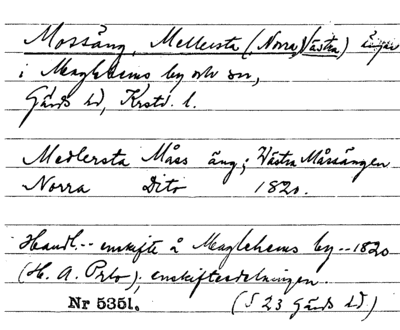 Mossäng, Mellersta (Norra, Västra) ängar
i Maglehems by och sn,
Gärds hd, Krstd. l.
Medlersta Måss äng; Västra Måssängen
Norra Dito 1820.
Handl. -- enskifte å Maglehems by -- 1820
(H. A. Prbo); enskiftesdelningen.
Nr 5351. (§ 23 Gärds hd)